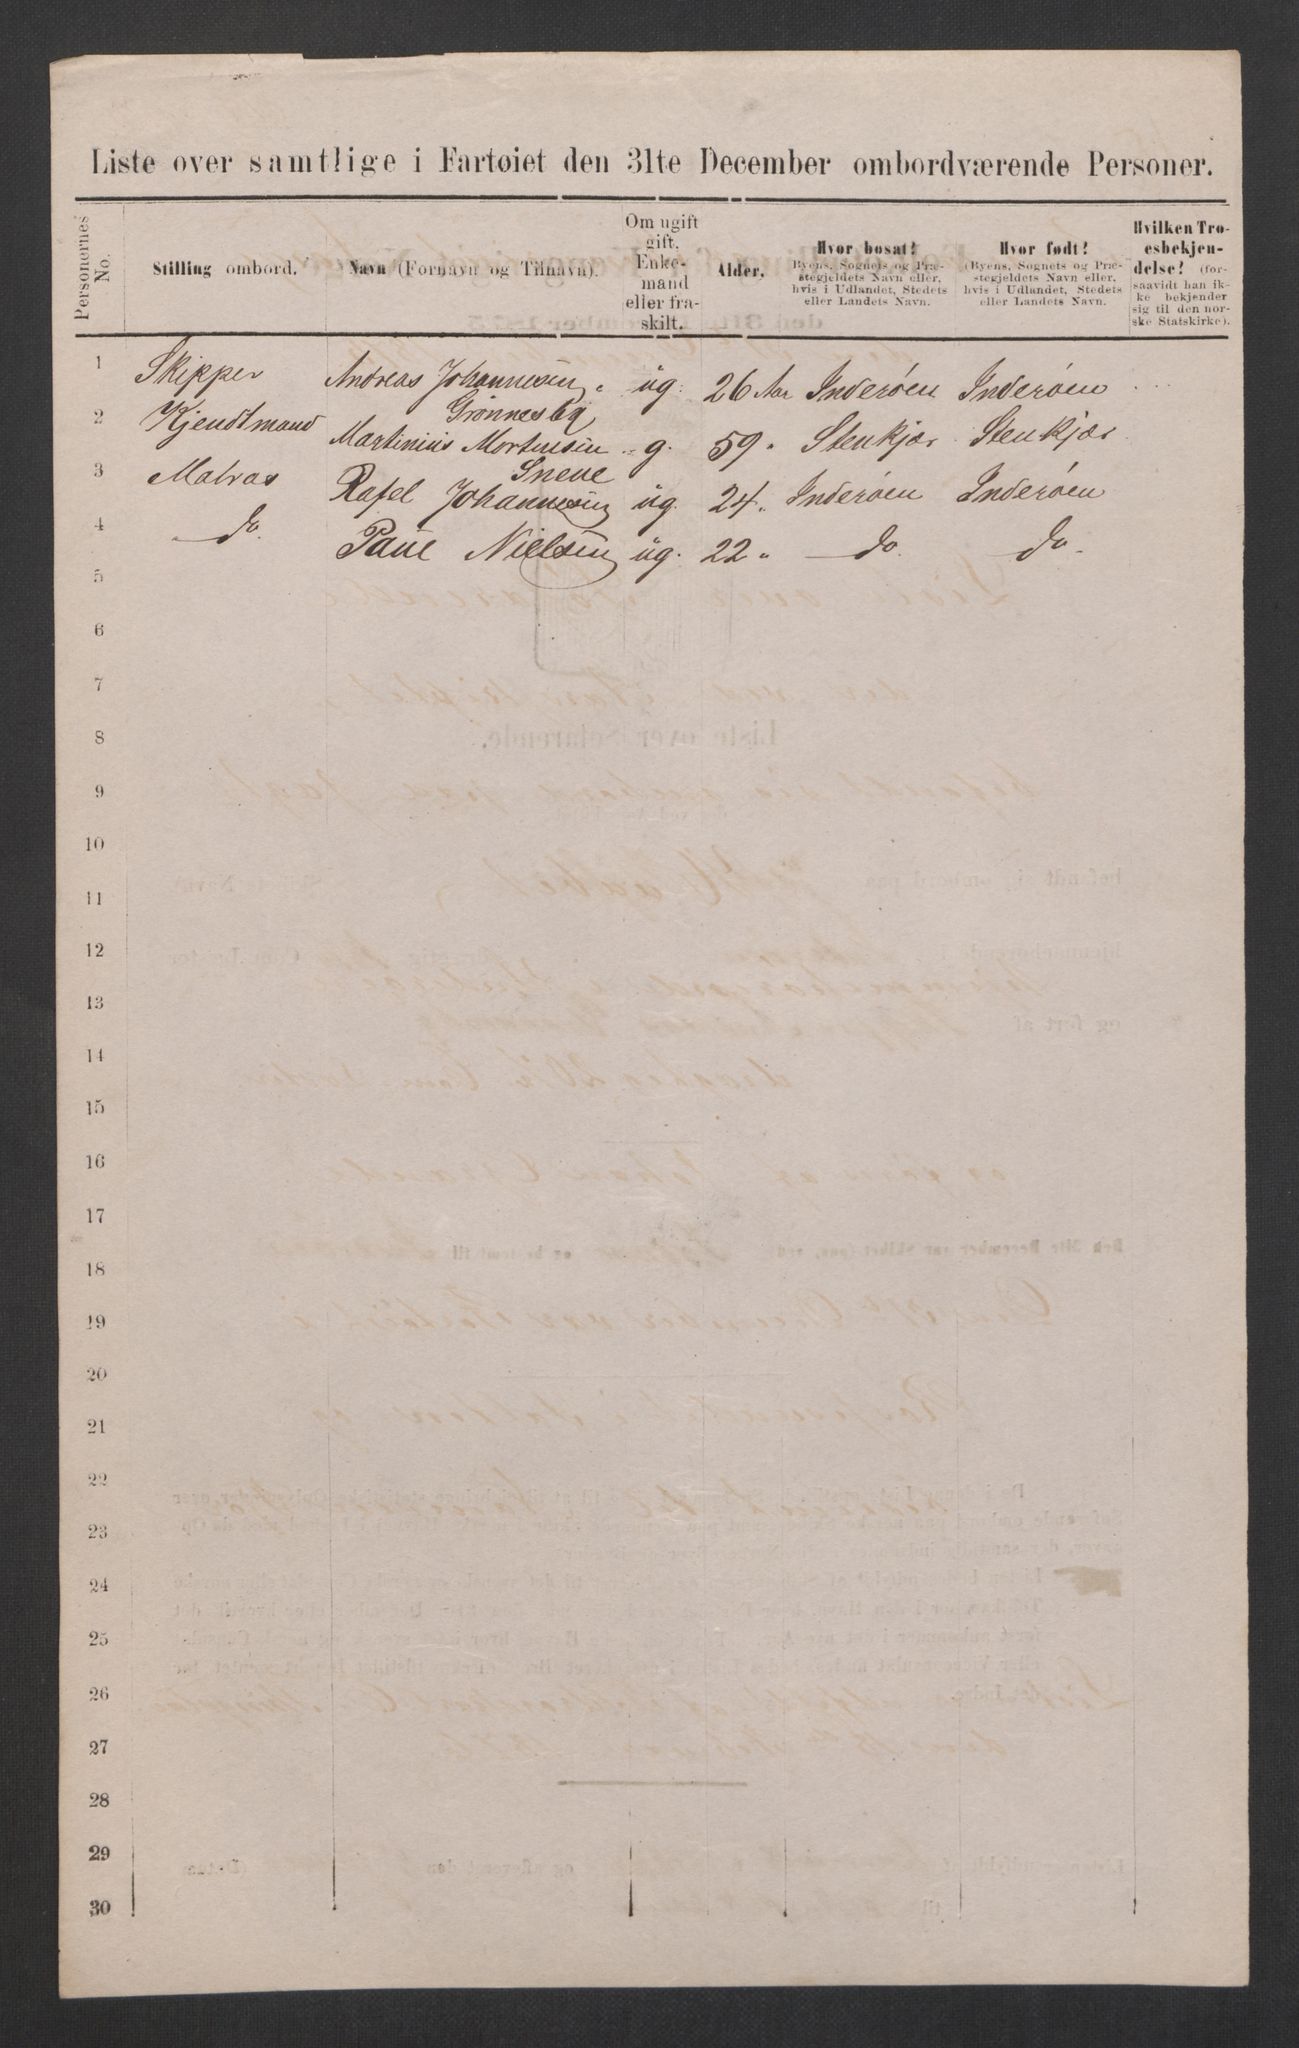 Liste over samtlige i Fartøiet den 31te December ombordværende Personer.
Personernes No. | Stilling ombord. | Navn (Fornavn og Tilnavn). | Om ugift gift, Enkemand eller fraskilt. | Alder. | Hvor bosat? (Byens, Sognets og Præstegjeldets Navn eller, hvis i Udlandet, Stedets eller Landets Navn. | Hvor født? (Byens, Sognets og Præstegjeldets Navn eller, hvis i Udlandet, Stedets eller Landets Navn. | Hvilken Troesbekjendelse? (forsaavidt han ikke bekjender sig til den norske Statskirke).
1 Skipper Andreas Johannesen. ug. 26 Aar Inderøen Inderøen
Grønnesby
2 Kjendtmand Martinius Mortensen g. 59 " Stenkjær Stenkjær
Sneve
3 Matros Rafel Johannesen ug. 24 " Inderøen Inderøen
4 do. Paul Nielsen ug. 22 " do. do.
5
6
7
8
9
10
11
12
13
14
15
16
17
18
19
20
21
22
23
24
25
26
27
28
29
30